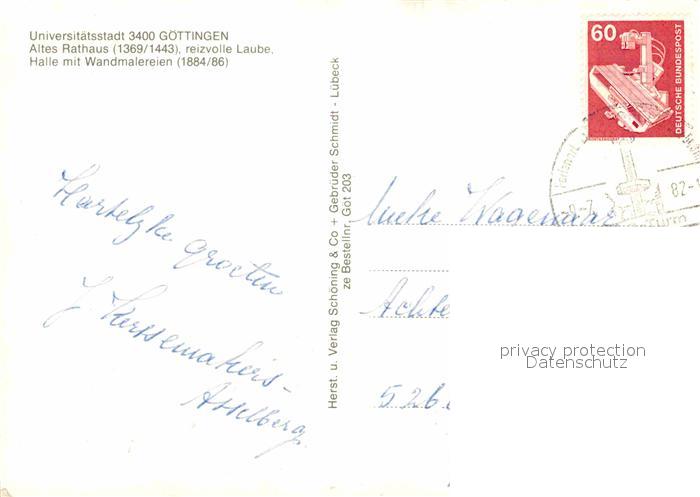 Universitätsstadt 3400 GÖTTINGEN
Altes Rathaus (1369/1443), reizvolle Laube,
Halle mit Wandmalereien (1884/86)
Hartelyke groeten
J. Kerssemakers-
Asselberg
Herst. u. Verlag Schöning & Co + Gebrüder Schmidt - Lübeck
ze Bestellnr. Got 203
60
DEUTSCHE BUNDESPOST
82-
Mieke Wagenaar
Achte
526
privacy protection
Datenschutz